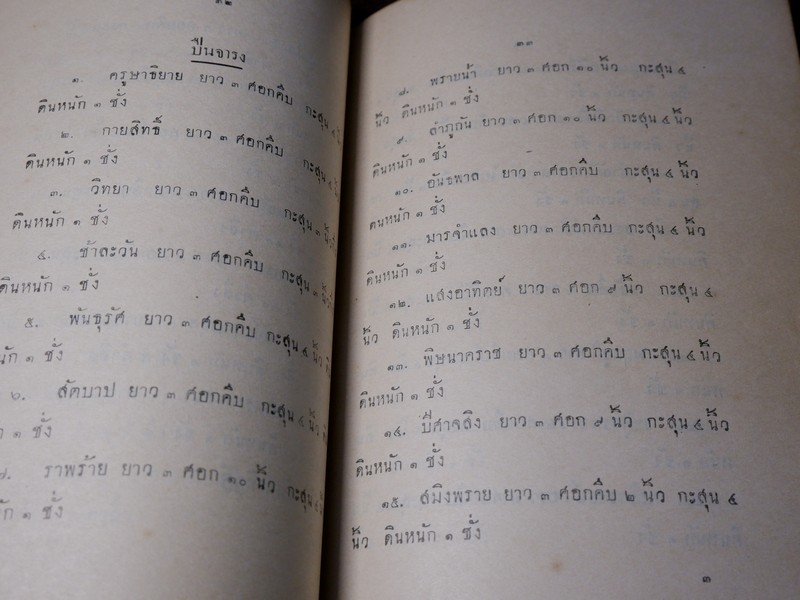 ๓๒
ปืนจารง
๑. ครูษาธิยาย ยาว ๓ ศอกคืบ กะสุน ๔ นิ้ว
ดินหนัก ๑ ชั่ง
๒. กายสิทธิ์ ยาว ๓ ศอกคืบ กะสุน ๔ นิ้ว
ดินหนัก ๑ ชั่ง
๓. วิทยา ยาว ๓ ศอกคืบ กะสุน ๓ นิ้ว
ดินหนัก ๑ ชั่ง
๔. ชาละวัน ยาว ๓ ศอกคืบ กะสุน ๔ นิ้ว
ดินหนัก ๑ ชั่ง
๕. พันธุรัศ ยาว ๓ ศอกคืบ กะสุน ๔ นิ้ว ดิน
หนัก ๑ ชั่ง
๖. สัตบาป ยาว ๓ ศอกคืบ กะสุน ๔ นิ้ว
๑ ชั่ง
๗. ราพร้าย ยาว ๓ ศอก ๑๐ นิ้ว กะสุน ๔
หนัก ๑ ชั่ง
๓๓
๘. พรายน้ำ ยาว ๓ ศอก ๑๐ นิ้ว กะสุน ๔
นิ้ว ดินหนัก ๑ ชั่ง
๙. ลำภูกัน ยาว ๓ ศอก ๑๐ นิ้ว กะสุน ๔ นิ้ว
ดินหนัก ๑ ชั่ง
๑๐. อันธพาล ยาว ๓ ศอกคืบ กะสุน ๔ นิ้ว
ดินหนัก ๑ ชั่ง
๑๑. มารจำแลง ยาว ๓ ศอกคืบ กะสุน ๔ นิ้ว
ดินหนัก ๑ ชั่ง
๑๒. แสงอาทิตย์ ยาว ๓ ศอก ๙ นิ้ว กะสุน ๔
นิ้ว ดินหนัก ๑ ชั่ง
๑๓. พิษนาคราช ยาว ๓ ศอกคืบ กะสุน ๔ นิ้ว
ดินหนัก ๑ ชั่ง
๑๔. ปีศาจสิง ยาว ๓ ศอก ๙ นิ้ว กะสุน ๔ นิ้ว
ดินหนัก ๑ ชั่ง
๑๕. สมิงพราย ยาว ๓ ศอกคืบ ๒ นิ้ว กะสุน ๔
นิ้ว ดินหนัก ๑ ชั่ง
๓